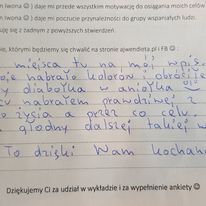 n Iwona 😊 ) daje mi przede wszystkim motywację do osiągania moich celów
n Iwona 😊 ) daje mi poczucie przynależności do grupy wspaniałych ludzi.
uję się z żadnym z powyższych stwierdzeń.
ie, którymi będziemy się chwalić na stronie ajwendieta.pl i FB 😊 :
miejsca tu na mój wpis.
oje nabrało kolorów i obróciło
y diabołka w aniołka
nabrałem prawdziwej z
życia a przez co celu.
głodny dalszej takiej w
To dzięki Wam kochan
Dziękujemy Ci za udział w wykładzie i za wypełnienie ankiety 😊